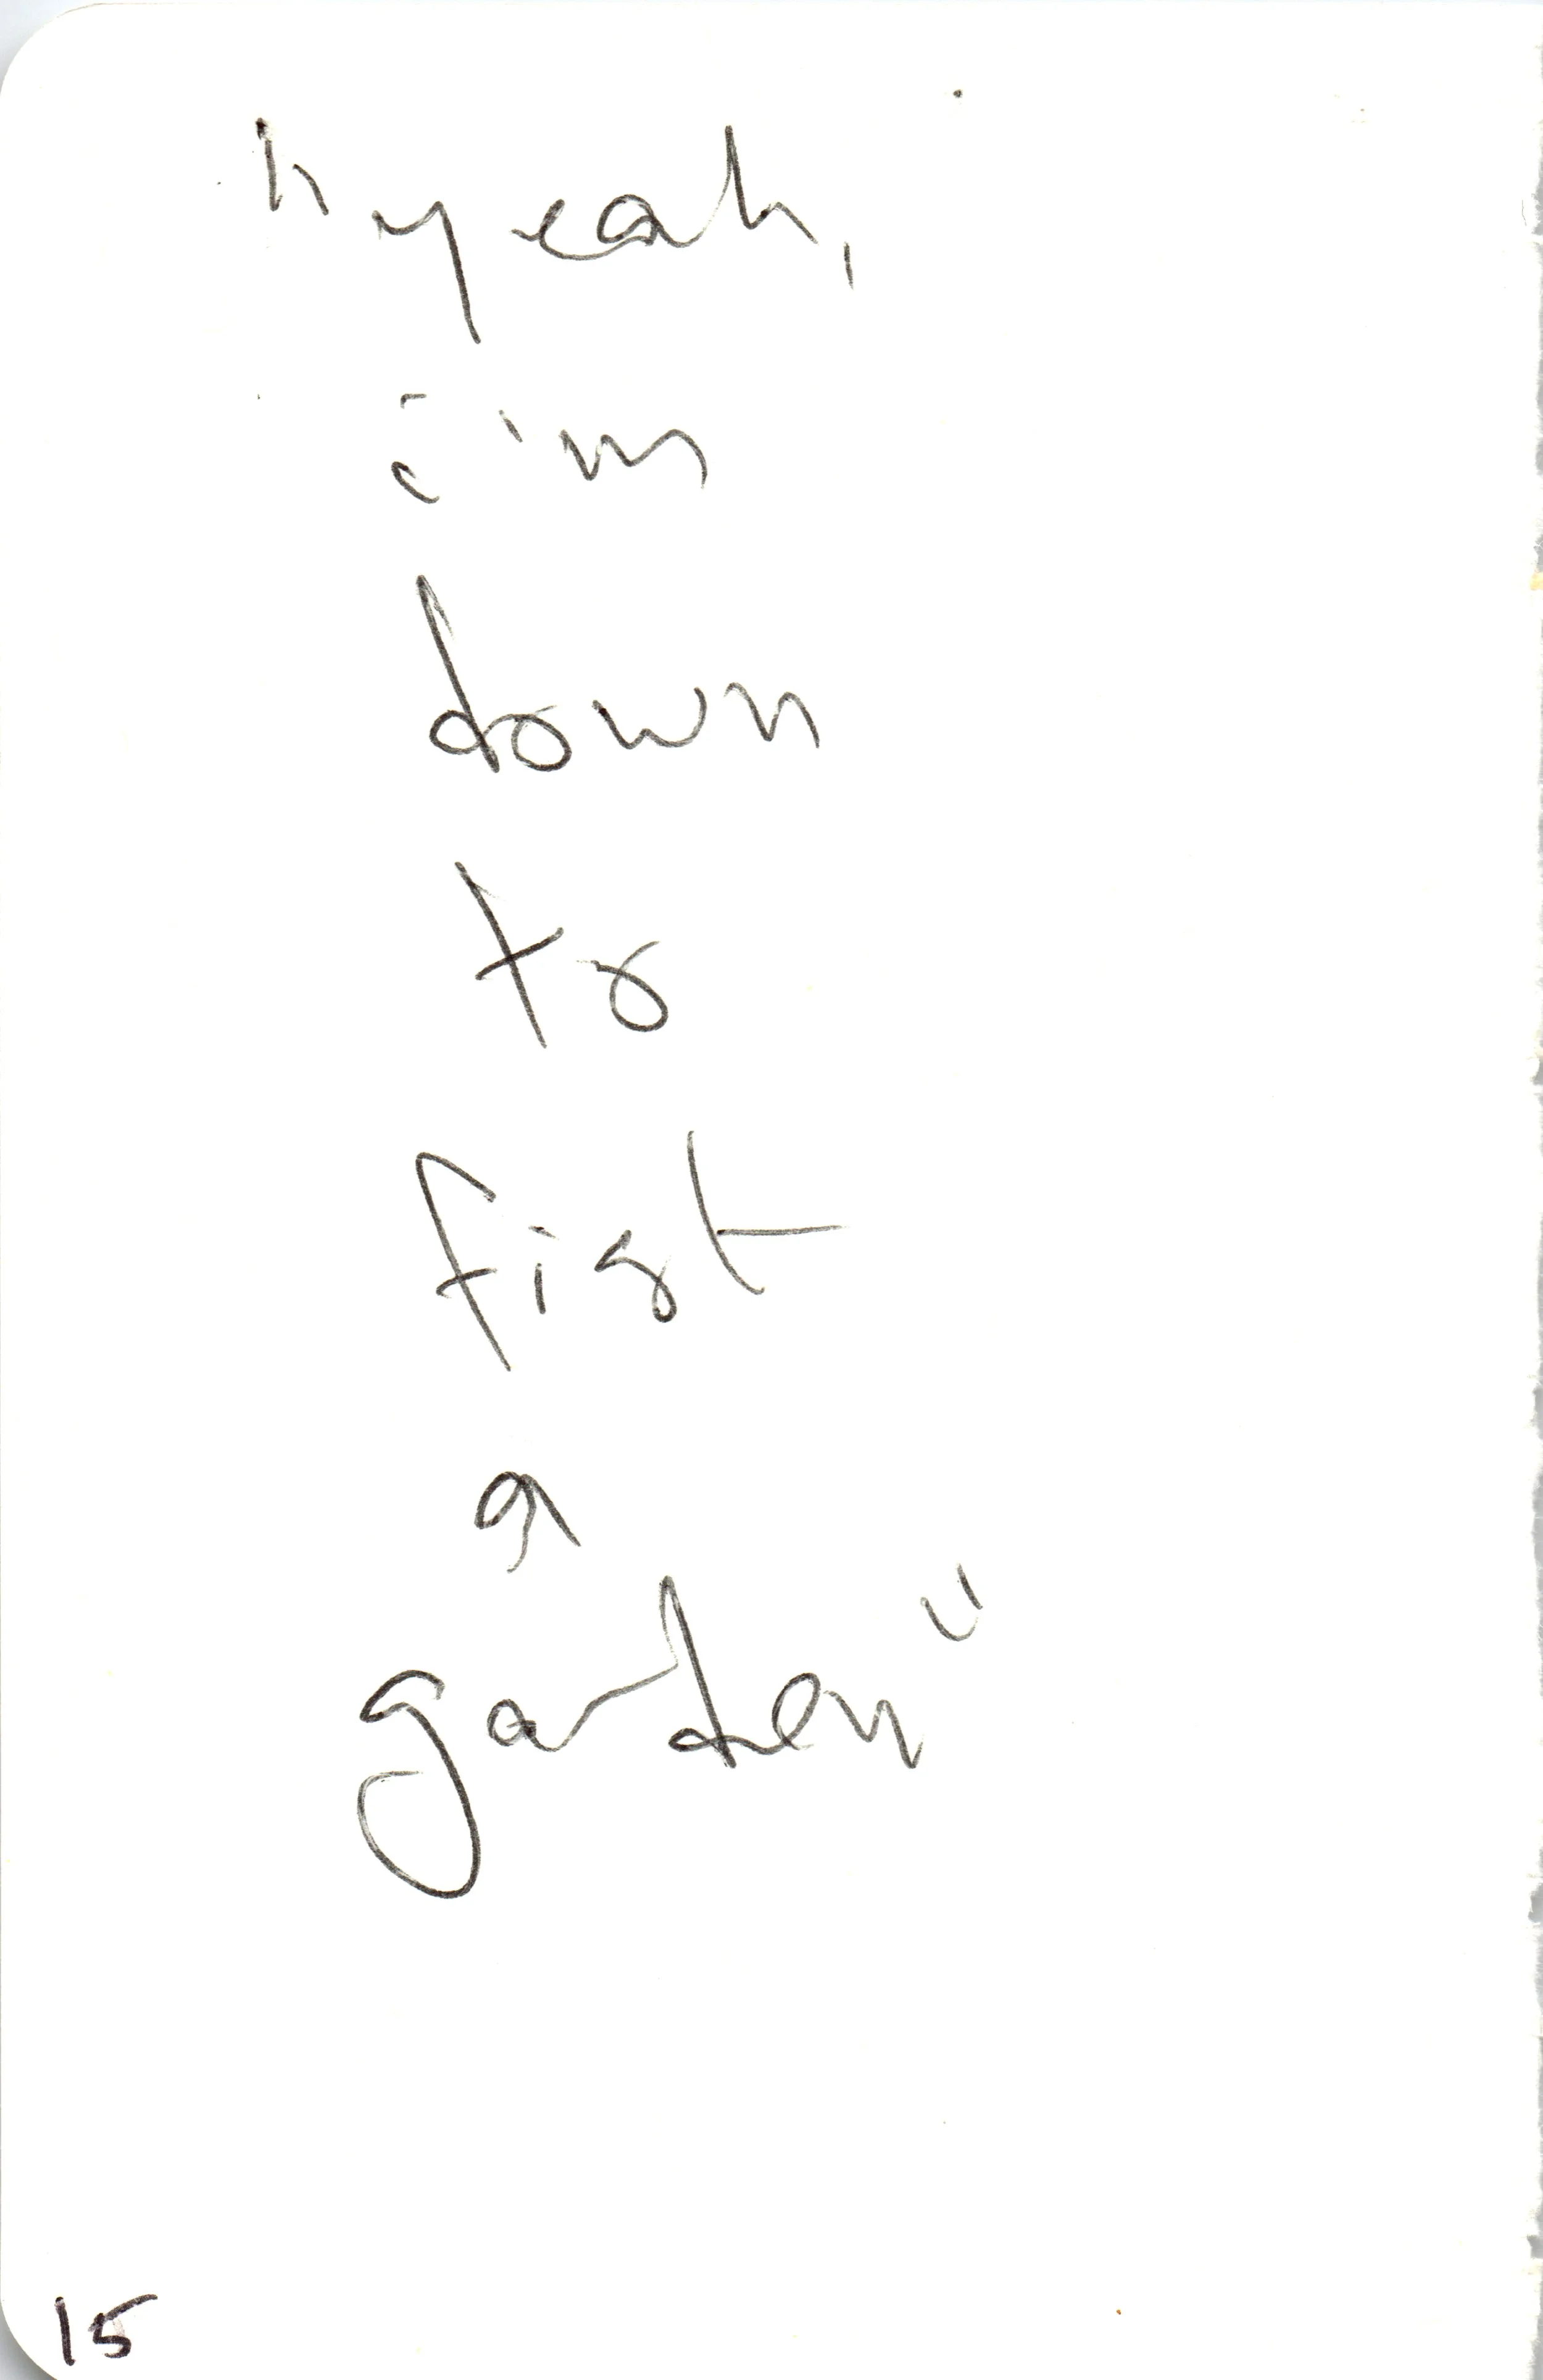 "yeah,
i'm
down
to
fist
a
garden"
15